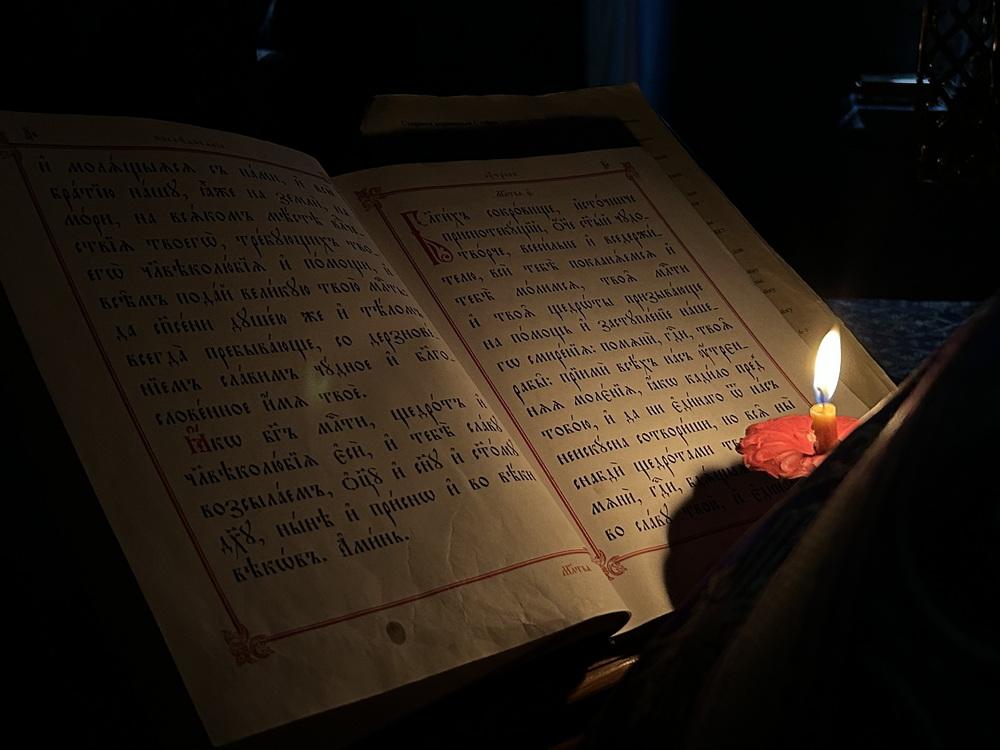 и҆ молѧ́щыѧсѧ съ на́ми, и҆ всю̀
бра́тїю на́шꙋ, ꙗ҆̀же на землѝ, на
мо́ри, на всѧ́комъ мѣ́стѣ влⷣы-
ствїѧ твоегѡ̀, тре́бꙋющихъ тво-
егѡ̀ чл҃вѣколю́бїѧ и҆ по́мощи, и҆
всѣ̑мъ пода́й вели́кꙋю твою̀ млⷭ҇ть
да сп҃се́ни дꙋше́ю же и҆ тѣ́ломъ
всегда̀ пребыва́юще, со дерзнове́-
нїемъ сла́вимъ чꙋ́дное и҆ бл҃го-
слове́нное и҆́мѧ твоѐ.
Ꙗ҆́кѡ бг҃ъ млⷭ҇ти, щедро́тъ и҆
чл҃вѣколю́бїѧ є҆сѝ, и҆ тебѣ̀ сла́вꙋ
возсыла́емъ, ѻ҆ц҃ꙋ̀ и҆ сн҃ꙋ и҆ ст҃о́мꙋ
дх҃ꙋ, ны́нѣ и҆ при́снѡ и҆ во вѣ́ки
вѣкѡ́въ. А҆ми́нь.
Мл҃твы
Мл҃тва
Бл҃ги́хъ сокро́вище, и҆сто́чниче
присноте́кꙋщїй, ѻ҆́ч҃е ст҃ы́й чꙋдо-
тво́рче, всеси́льне и҆ вседержи́-
телю, всѝ тебѣ̀ покланѧ́емсѧ
тебѣ̀ мо́лимсѧ, твоѧ̑ млⷭ҇ти
и҆ твоѧ̑ щедрѡ́ты призыва́юще
на по́мощь и҆ застꙋпле́нїе на́ше-
гѡ смире́нїѧ: помѧнѝ, гдⷭ҇и, твоѧ̑
рабы̑: прїимѝ всѣ́хъ на́съ ᲂу҆́трен-
нѧѧ моле́нїѧ, ꙗ҆́кѡ кади́ло пред̾
тобо́ю, и҆ да ни є҆ди́наго ѿ на́съ
неискꙋ́сна сотвори́ши, но всѧ̑ ны̀
снабдѝ щедро́тами
мѧнѝ, гдⷭ҇и,
во сла́вꙋ твою̀, и҆